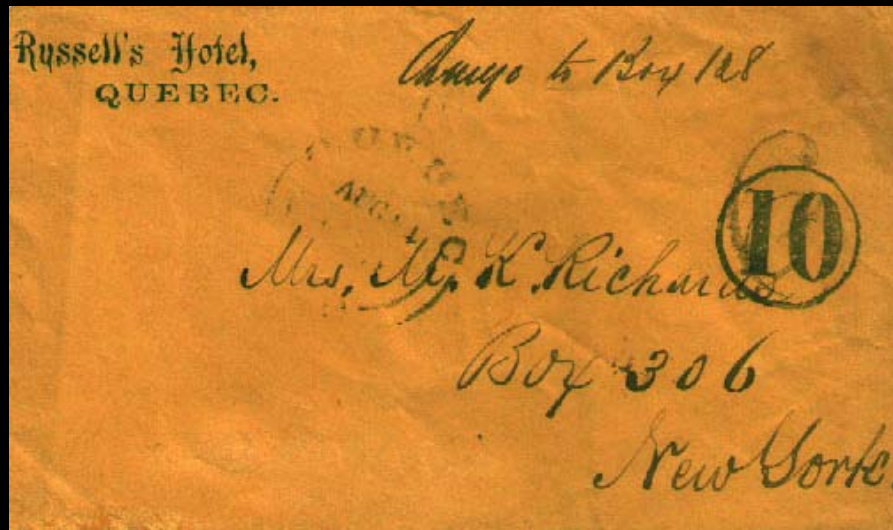 Russell's Hotel,
QUEBEC.
Change to Box 128
10
AUG
Mrs, M. K. Richards
Box 306
New York.